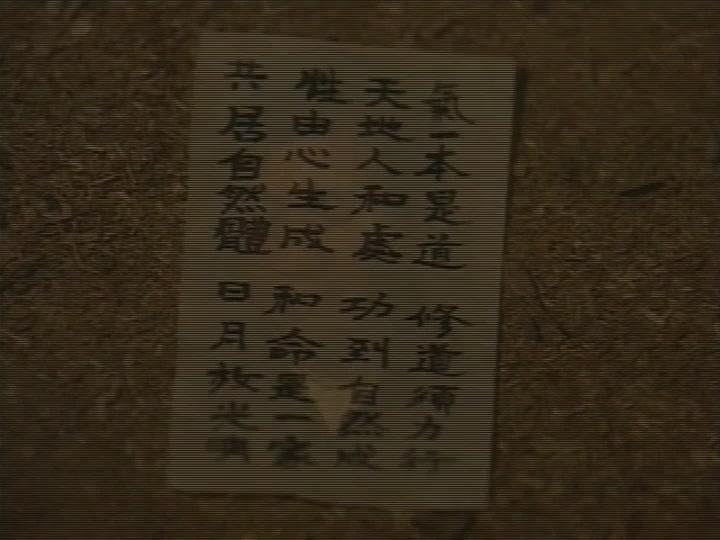 氣一本是道 修道須力行
天地人和處 功到自然成
性由心生成 和命是一家
共居自然體 日月放光明